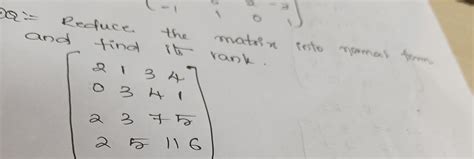 -1 1 0 1
Q:= Reduce the matrix into normal form
and find its rank.
2 1 3 4
0 3 4 1
2 3 7 5
2 5 11 6